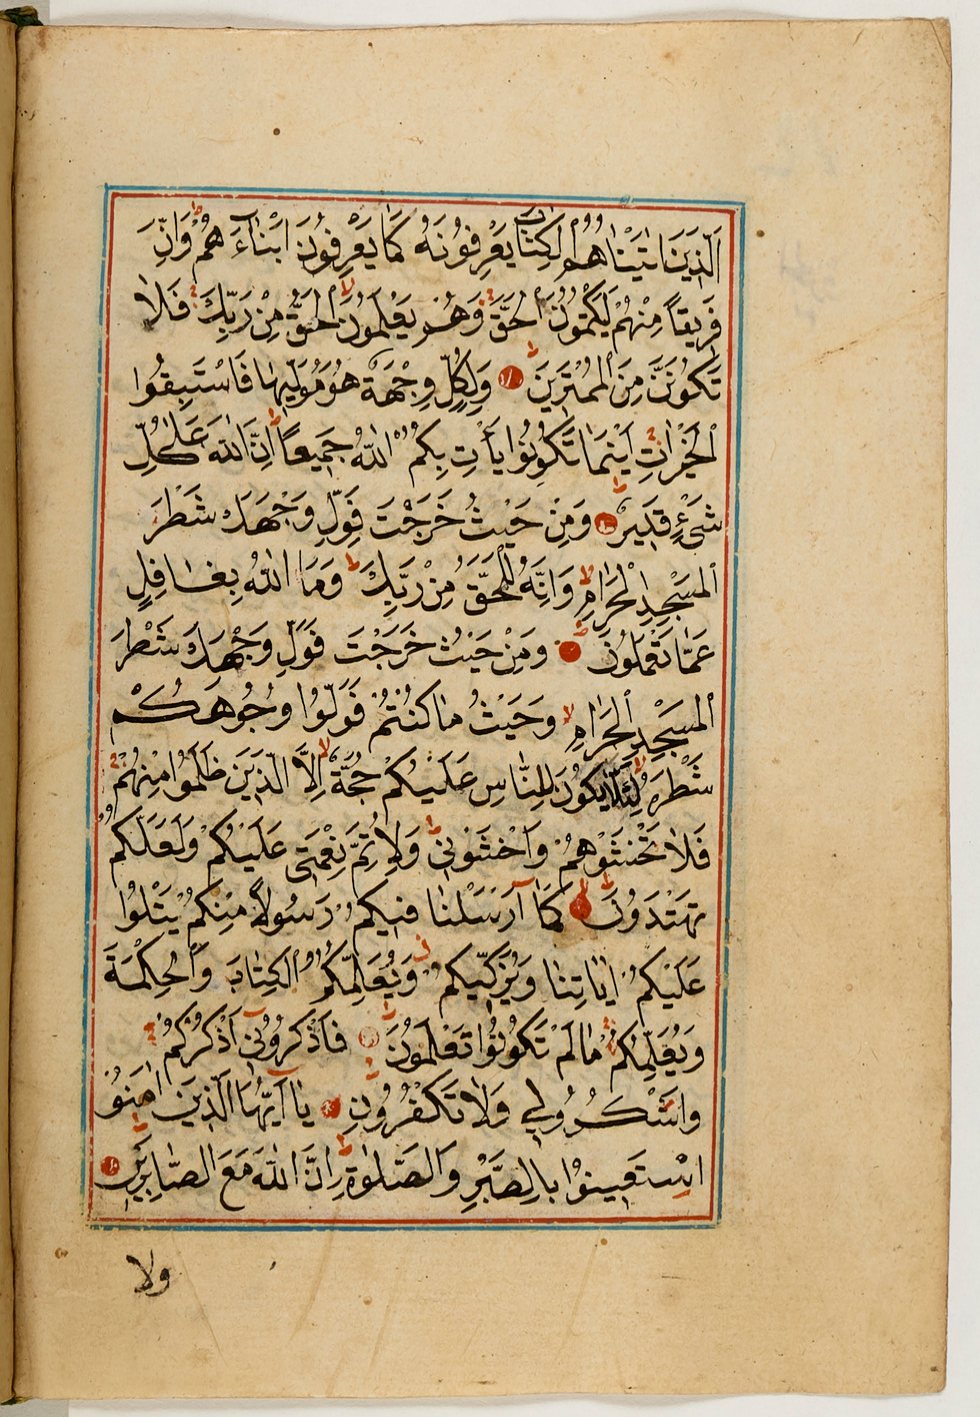 اَلَّذِينَ اٰتَيْنَاهُمُ الْكِتَابَ يَعْرِفُونَهُ كَمَا يَعْرِفُونَ اَبْنَآءَ هُمْ وَاِنَّ
فَرِيقًا مِنْهُمْ لَيَكْتُمُونَ الْحَقَّ وَهُمْ يَعْلَمُونَ اَلْحَقُّ مِنْ رَبِّكَ فَلَا
تَكُونَنَّ مِنَ الْمُمْتَرِينَ وَلِكُلٍّ وِجْهَةٌ هُوَ مُوَلِّيهَا فَاسْتَبِقُوا
الْخَيْرَاتِ اَيْنَمَا تَكُونُوا يَأْتِ بِكُمُ اللّٰهُ جَمِيعًا اِنَّ اللّٰهَ عَلٰى كُلِّ
شَىْءٍ قَدِيرٌ وَمِنْ حَيْثُ خَرَجْتَ فَوَلِّ وَجْهَكَ شَطْرَ
الْمَسْجِدِ الْحَرَامِ وَاِنَّهُ لَلْحَقُّ مِنْ رَبِّكَ وَمَا اللّٰهُ بِغَافِلٍ
عَمَّا تَعْمَلُونَ وَمِنْ حَيْثُ خَرَجْتَ فَوَلِّ وَجْهَكَ شَطْرَ
الْمَسْجِدِ الْحَرَامِ وَحَيْثُ مَا كُنْتُمْ فَوَلُّوا وُجُوهَكُمْ
شَطْرَهُ لِئَلَّا يَكُونَ لِلنَّاسِ عَلَيْكُمْ حُجَّةٌ اِلَّا الَّذِينَ ظَلَمُوا مِنْهُمْ
فَلَا تَخْشَوْهُمْ وَاخْشَوْنِى وَلِاُتِمَّ نِعْمَتِى عَلَيْكُمْ وَلَعَلَّكُمْ
تَهْتَدُونَ كَمَا اَرْسَلْنَا فِيكُمْ رَسُولًا مِنْكُمْ يَتْلُوا
عَلَيْكُمْ اٰيَاتِنَا وَيُزَكِّيكُمْ وَيُعَلِّمُكُمُ الْكِتَابَ وَالْحِكْمَةَ
وَيُعَلِّمُكُمْ مَا لَمْ تَكُونُوا تَعْلَمُونَ فَاذْكُرُونِى اَذْكُرْكُمْ
وَاشْكُرُولِى وَلَا تَكْفُرُونِ يَا اَيُّهَا الَّذِينَ اٰمَنُوا
اسْتَعِينُوا بِالصَّبْرِ وَالصَّلٰوةِ اِنَّ اللّٰهَ مَعَ الصَّابِرِينَ
ولا